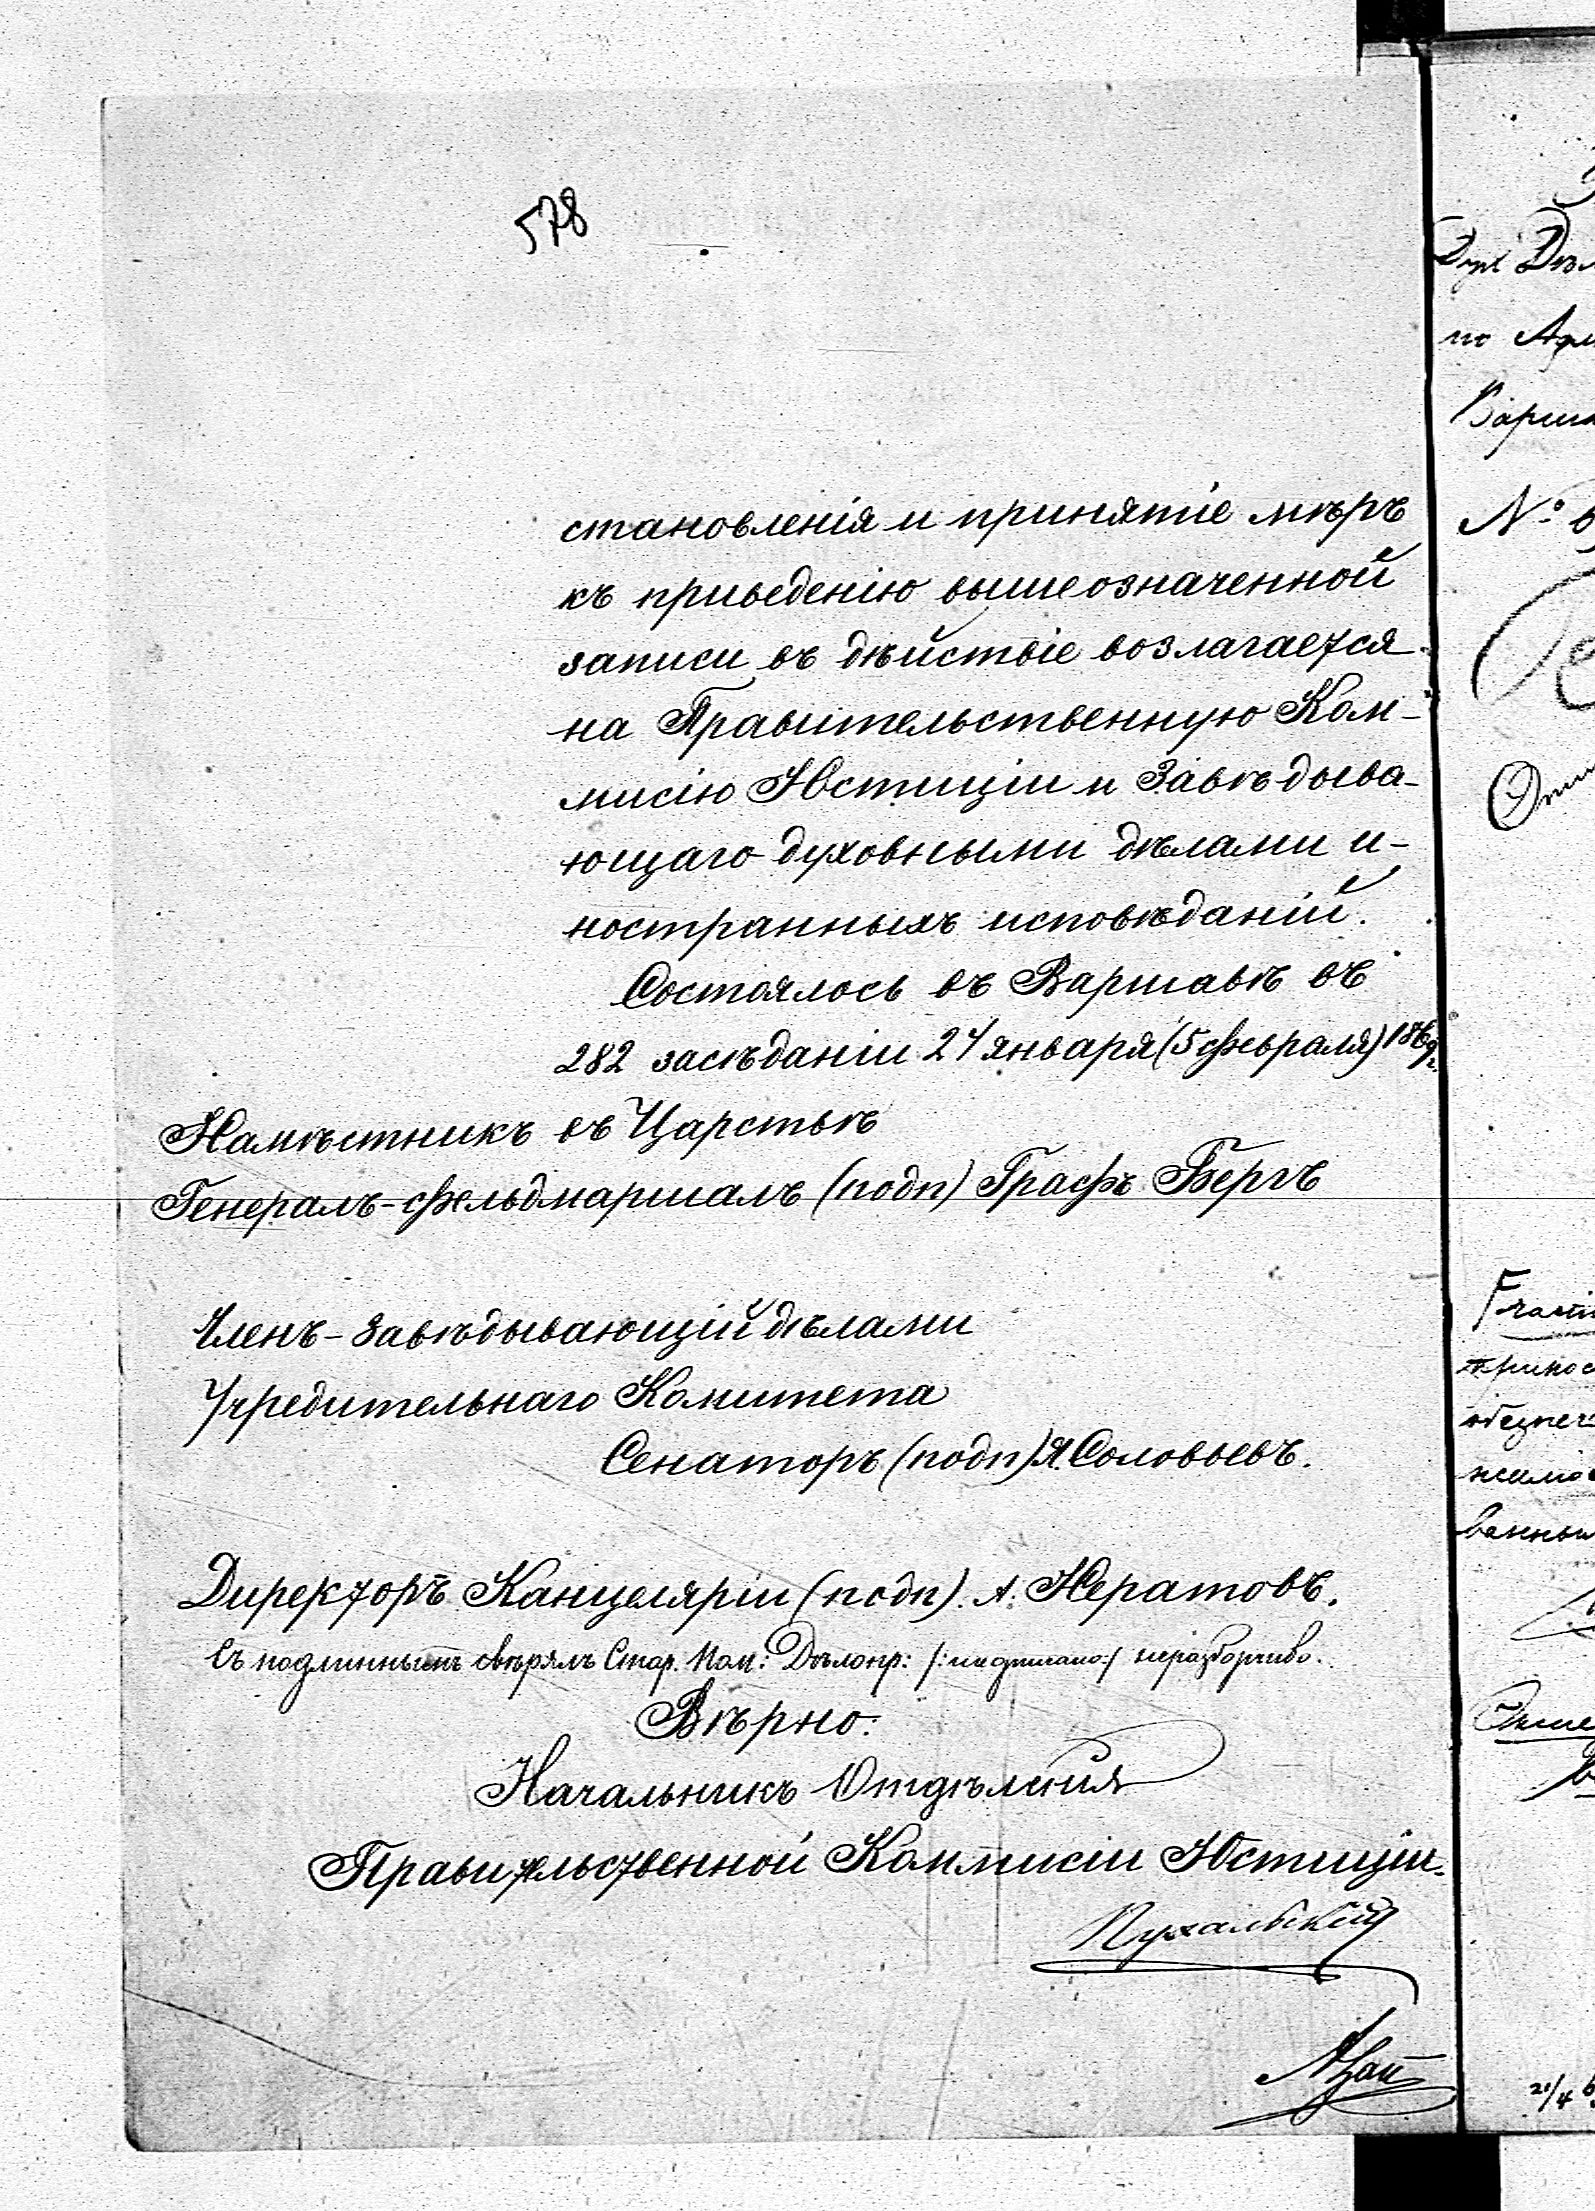 578
становленія и принятіе мѣръ
къ приведенію вышеозначенной
записи въ дѣйствіе возлагается
на Правительственную Ком-
мисію Юстиціи и Завѣдыва-
ющаго духовными дѣлами и-
ностранныхъ исповѣданій.
Состоялось въ Варшавѣ въ
282 засѣданіи 24 января (5 февраля) 1869 г.
Намѣстникъ въ Царствѣ
Генералъ-фельдмаршалъ (подп) Графъ Бергъ
Членъ-Завѣдывающій дѣлами
Учредительнаго Комитета
Сенаторъ (подп) Я. Соловьевъ.
Директоръ Канцеляріи (подп). А. Нератовъ.
Съ подлиннымъ свѣрялъ Стар. Пом: Дѣлопр: /:подписано:/ неразборчиво.
Вѣрно:
Начальникъ Отдѣленія
Правительственной Коммисіи Юстиціи.
Пухальскій
по
№
21/4